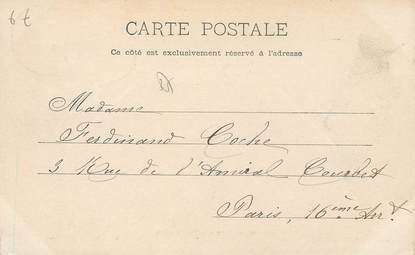 6 €
CARTE POSTALE
Ce côté est exclusivement réservé à l'adresse
Madame
Ferdinand Coche
3 Rue de l'Amiral Courbet
Paris, 16ème Arrt